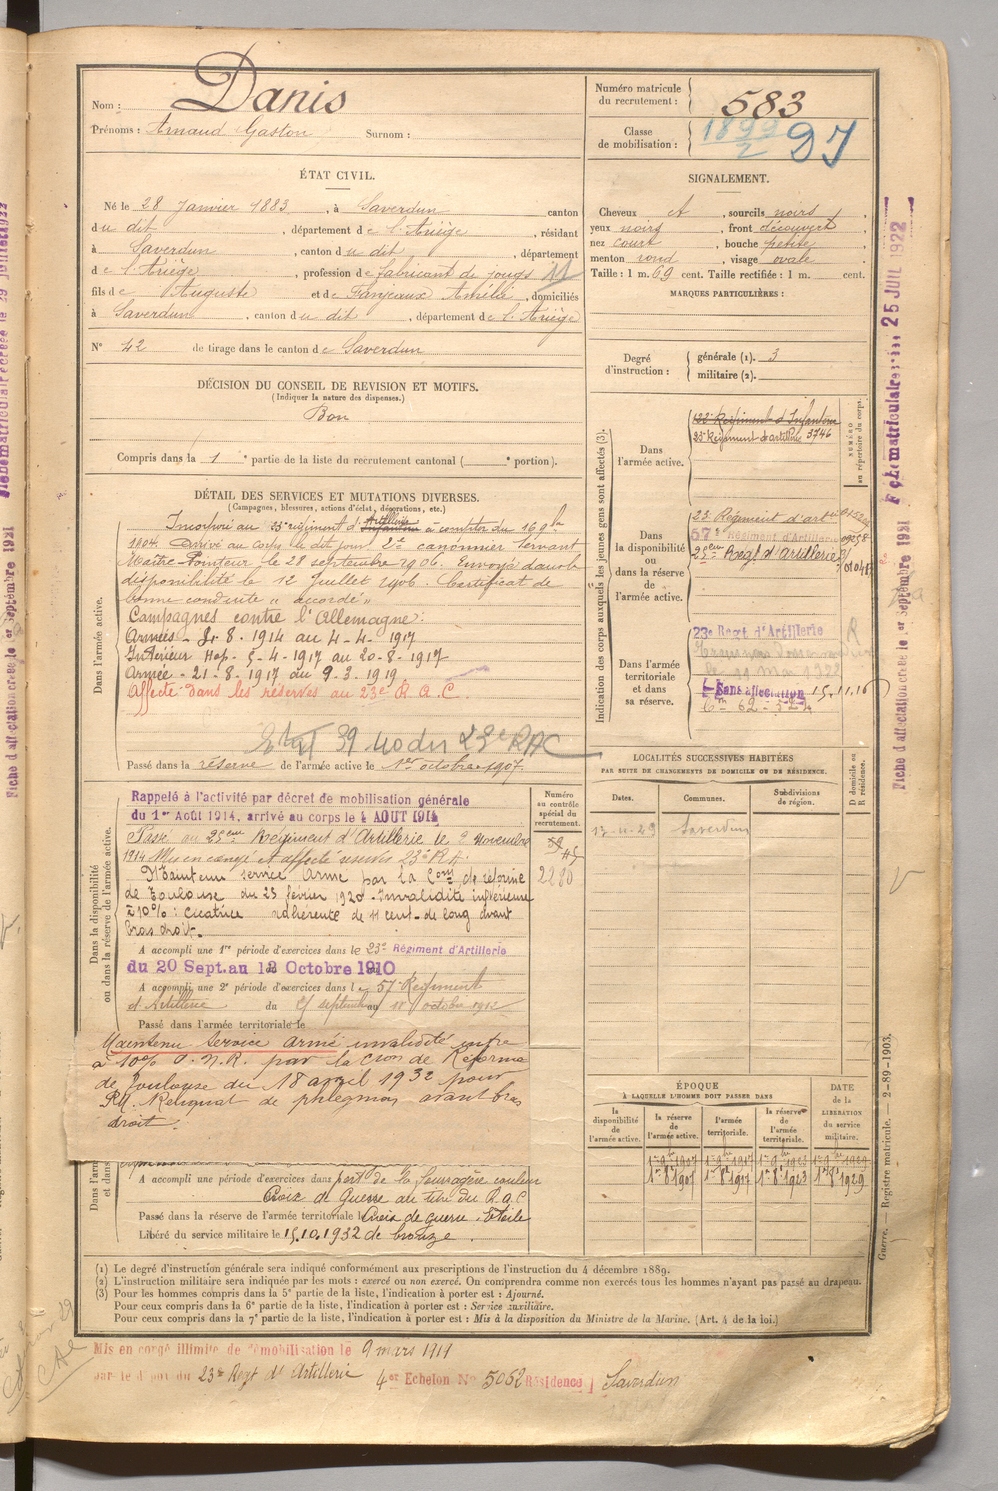 Nom : Danis
Prénoms : Arnaud Gaston Surnom :
ÉTAT CIVIL.
Né le 28 Janvier 1883, à Saverdun canton
du dit, département de l'Ariège, résidant
à Saverdun, canton du dit, département
de l'Ariège, profession de fabricant de jougs
fils de Auguste et de Fanjeaux Amélie, domiciliés
à Saverdun, canton du dit, département de l'Ariège
N° 42 de tirage dans le canton de Saverdun
DÉCISION DU CONSEIL DE REVISION ET MOTIFS.
(Indiquer la nature des dispenses.)
Bon
Compris dans la 1e partie de la liste du recrutement cantonal ( e portion).
DÉTAIL DES SERVICES ET MUTATIONS DIVERSES.
(Campagnes, blessures, actions d'éclat, décorations, etc.)
Dans l'armée active.
Incorporé au 23e régiment d'Artillerie à compter du 16 9bre
1904. Arrivé au corps le dit jour 2e canonnier servant
Maître-Pointeur le 28 septembre 1906. Envoyé dans la
disponibilité le 12 Juillet 1906. Certificat de
bonne conduite "accordé"
Campagnes contre l'Allemagne :
Armées - 8 - 1914 au 4-4-1917
Intérieur Hop - 5-4-1917 au 20-8-1917
Armée - 21-8-1917 au 9-3-1919
Affecté dans les réserves au 23e R.A.C.
39 40 du 23e RAC
Passé dans la réserve de l'armée active le 1er octobre 1907.
Dans la disponibilité
ou dans la réserve de l'armée active.
Rappelé à l'activité par décret de mobilisation générale
du 1er Août 1914, arrivé au corps le 4 AOUT 1914
Passé au 25eme Régiment d'Artillerie le 2 Novembre
1914 Mis en congé et affecté réserves 23e R.A.
Maintenu service Armé par la Con de réforme
de Toulouse du 23 février 1920. Invalidité inférieure
à 10% : cicatrice adhérente de 11 cent. de long avant
bras droit.
A accompli une 1re période d'exercices dans le 23e Régiment d'Artillerie
du 20 Sept. au 12 Octobre 1910
A accompli une 2e période d'exercices dans le 57e Régiment
d'Artillerie du septembre au 18 octobre 1912
Passé dans l'armée territoriale le
Maintenu service armé invalidité infre
à 10% P.N.R. par la Cion de Réforme
de Toulouse du 18 avril 1932 pour
Reliquat de phlegmon avant bras
droit.
A accompli une période d'exercices dans port de la fourragère couleur
Croix de Guerre au titre du R.A.C
Passé dans la réserve de l'armée territoriale le Croix de guerre, Etoile
Libéré du service militaire le 15.10.1932 de bronze.
Numéro
au contrôle
spécial du
recrutement.
2280
Numéro matricule
du recrutement : 583
Classe
de mobilisation :
SIGNALEMENT.
Cheveux et, sourcils noirs
yeux noirs, front découvert
nez court, bouche petite
menton rond, visage ovale
Taille : 1 m. 69 cent. Taille rectifiée : 1 m. cent.
MARQUES PARTICULIÈRES :
Degré
d'instruction :
générale (1). 3
militaire (2).
Indication des corps auxquels les jeunes gens sont affectés (3).
NUMÉRO
au répertoire du corps.
Dans
l'armée active.
122e Régiment d'Infanterie
23e Régiment d'artillerie 3746
Dans
la disponibilité
ou
dans la réserve
de
l'armée active.
23e Régiment d'art
57e Régiment d'Artillerie
25eme Régt d'Artillerie
Dans l'armée
territoriale
et dans
sa réserve.
23e Regt d'Artillerie
Sans affectation 15.11.16
LOCALITÉS SUCCESSIVES HABITÉES
PAR SUITE DE CHANGEMENTS DE DOMICILE OU DE RÉSIDENCE.
Dates. Communes. Subdivisions
de région.
D domicile ou
R résidence.
Saverdun
ÉPOQUE
À LAQUELLE L'HOMME DOIT PASSER DANS
la
disponibilité
de
l'armée active.
la réserve
de
l'armée active.
l'armée
territoriale.
la réserve
de
l'armée
territoriale.
DATE
de la
LIBÉRATION
du service
militaire.
1r 9bre 1907 1r 9bre 1917 1r 9bre 1923 1r 9bre 1929
1r 8bre 1907 1r 8bre 1917 1r 8bre 1923 1r 8bre 1929
(1) Le degré d'instruction générale sera indiqué conformément aux prescriptions de l'instruction du 4 décembre 1889.
(2) L'instruction militaire sera indiquée par les mots : exercé ou non exercé. On comprendra comme non exercés tous les hommes n'ayant pas passé au drapeau.
(3) Pour les hommes compris dans la 5e partie de la liste, l'indication à porter est : Ajourné.
Pour ceux compris dans la 6e partie de la liste, l'indication à porter est : Service auxiliaire.
Pour ceux compris dans la 7e partie de la liste, l'indication à porter est : Mis à la disposition du Ministre de la Marine. (Art. 4 de la loi.)
Mis en congé illimité de démobilisation le 9 mars 1911
par le dépôt du 23e Regt d'Artillerie 4er Echelon No 5062 Résidence Saverdun
Guerre. — Registre matricule. — 2-89-1903.
25 JUIL 1922
Fiche d'affectation créée le 1er Septembre 1921